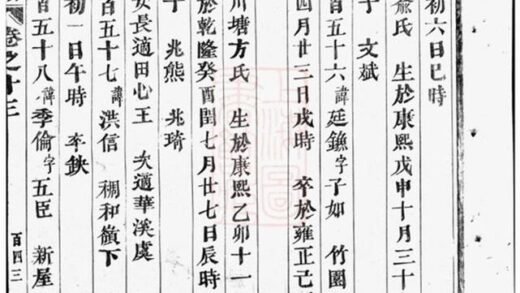 初六日巳時
俞氏 生於康熙戊申十月三十
子 文斌
百五十六 諱廷字子如 竹園
四月廿三日戌時 卒於雍正己
川塘方氏 生於康熙乙卯十一
於乾隆癸酉閏七月廿七日辰時
子 兆熊 兆琦
女長適田心王 次適華溪虞
百五十七 諱洪信 和嶺下
初一日午時 卒鉠
百五十八 諱季倫字五臣 新屋
卷之十三 百四三